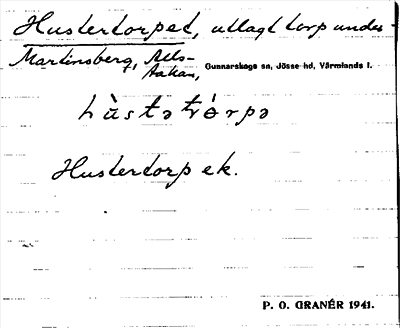 Hustertorpet, utlagt torp under
Martinsberg, Mells-
Gunnarskogs sn, Jösse hd, Värmlands l.
hùstətórpə
Hustertorp ek.
P. O. GRANÉR 1941.